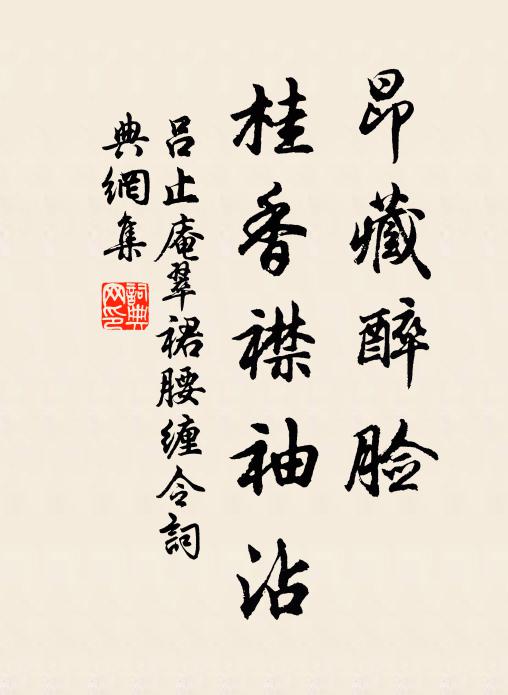 昂藏醉脸
桂香襟袖沾
吕止庵翠裙腰缠令词
典網集
詞典网印